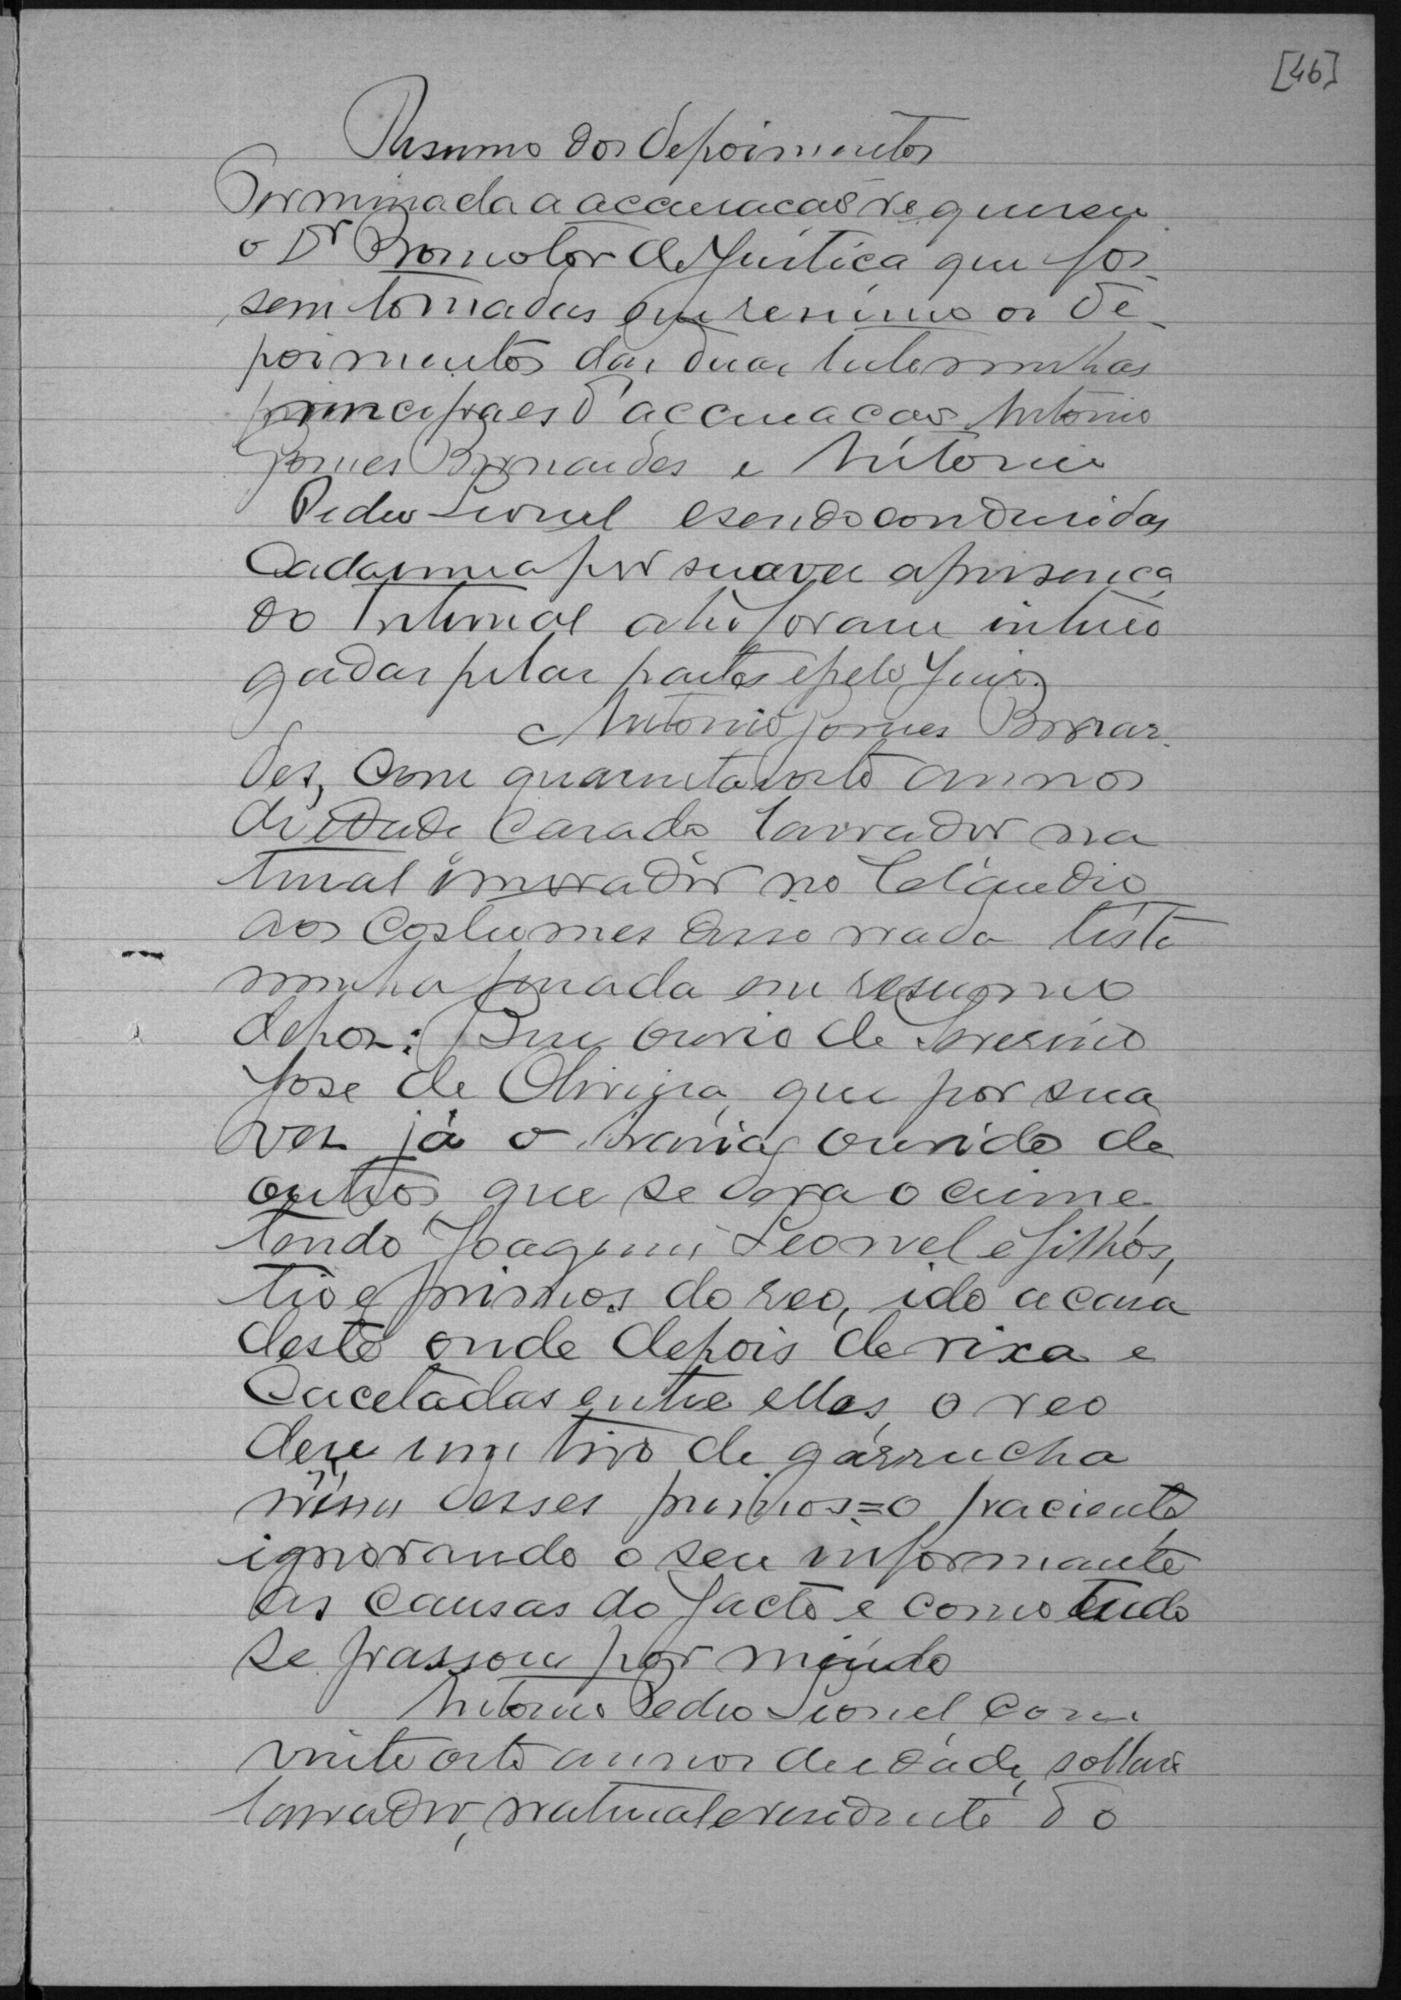 [46]
Resumo dos depoimentos
Terminada a accusacão requereu
o Dr Promotor de Justiça que fos-
sem tomadas em resumo os de-
poimentos das duas testemunhas
principaes d'accusacão Antonio
Gomes Bernardes e Antonio
Pedro Leonel e sendo conduzidas
Cada uma por sua vez a presença
do Tribunal ahi foram inttero
gadas pelas partes e pelo Juiz.
Antonio Gomes Bernar-
des, com quarenta e oito annos
de edade Casado lavrador na
tural e morador no Claudio
aos Costumes disse nada teste
munha jurada em resumo
depoz: Que ouvio de Severino
Jose de Oliveira, que por sua
vez já o havia ouvido de
outros, que se dera o crime
tendo Joaquim Leonel e filhos,
tio e primos do reo, ido a casa
deste onde depois de rixa e
Cacetadas entre elles, o reo
deu um tiro de garrucha
n'um desses primos = o paciente
ignorando o seu informante
as causas do facto e como tudo
se passou por miúdo
Antonio Pedro Leonel com
vinte oito annos de edade, solteiro
lavrador, natural e residente do